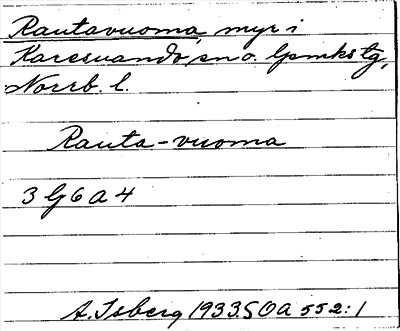 Rautavuoma, myr i
Karesuando sn o. lpmks tg,
Norrb. l.
Rauta-vuoma
3 G 6 a 4
A. Isberg 1933 SOA 552:1